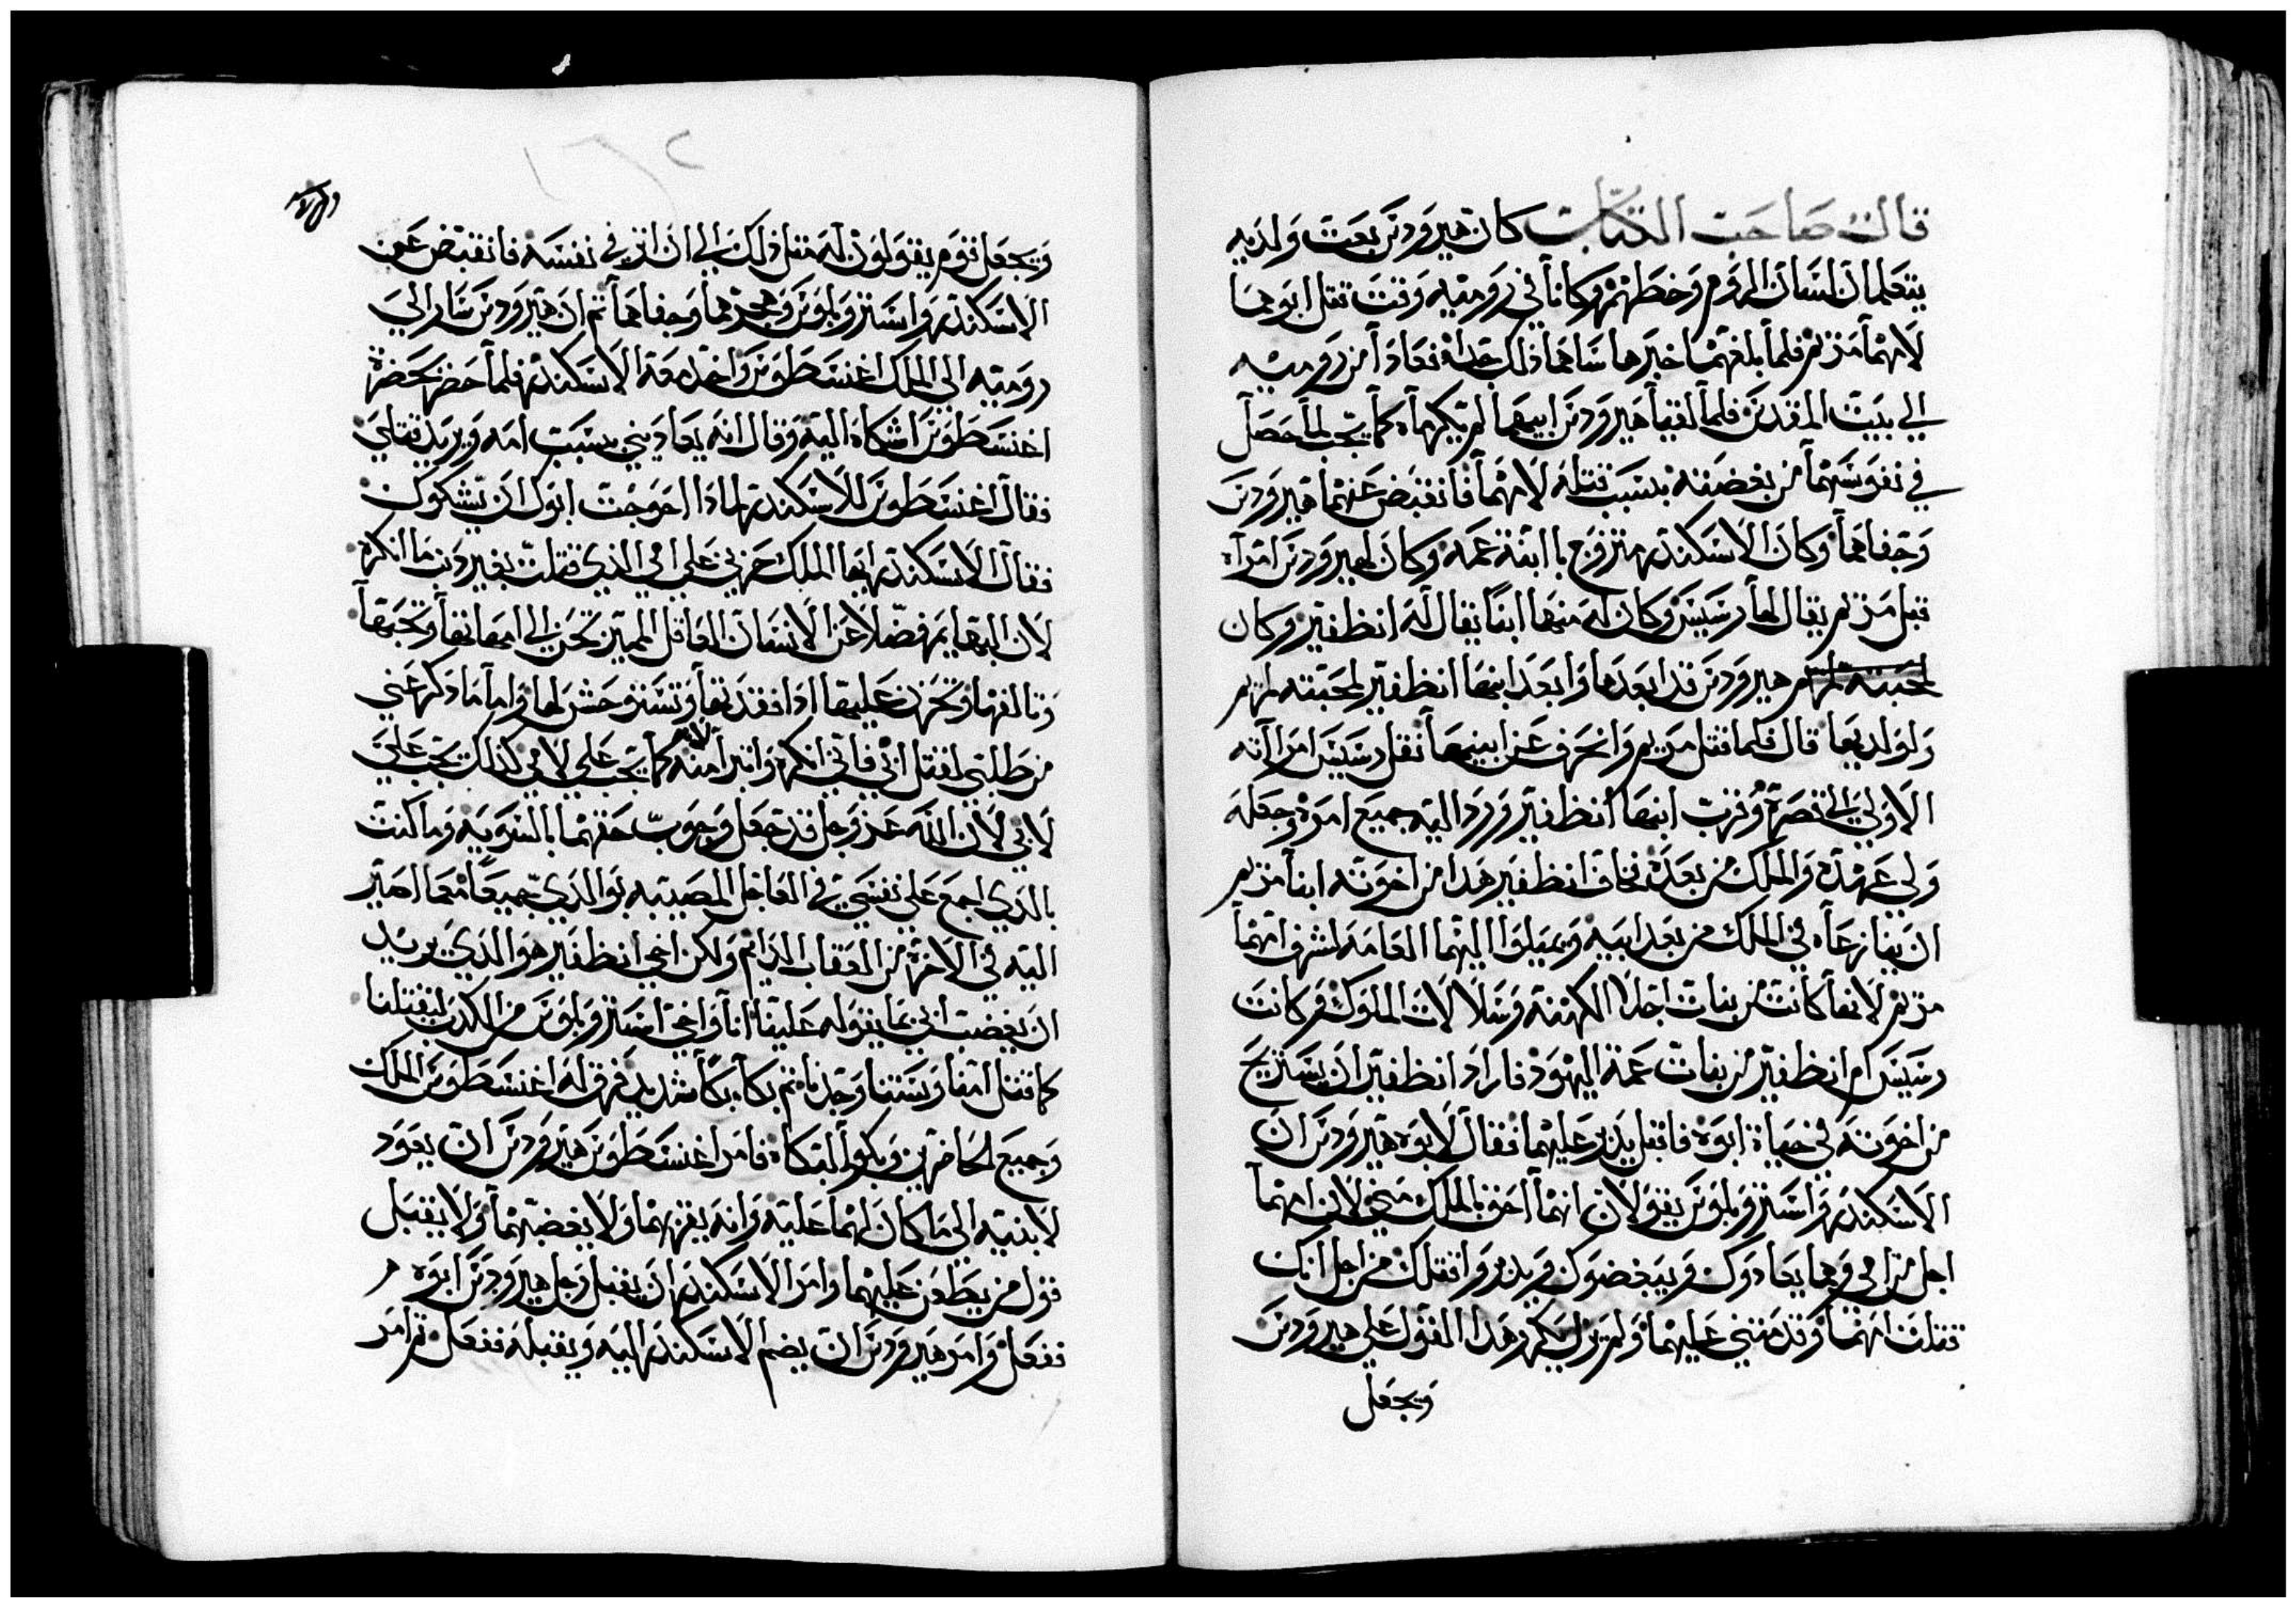 قال صاحب الكتاب كان هيرودس بعث ولديه
يتعلمان لسان الروم وخطهم وكانا في رومية وقت قتل ابوهما
لامهما مريم فلما بلغهما خبرها ساهما ذلك جداً فعادا من رومية
الي بيت المقدس فلما لقيا هيرودس ابيهما لم يكرماه كما يجب لما حصل
في نفوسهما من بغضته بسبب قتله لامهما فانقبض عنهما هيرودس
وجفاهما وكان الاسكندر متزوج باابنة عمه وكان لهيرودس امراه
قبل مريم يقال لها رسيس وكان له منها ابناً يقال له انظفتر وكان
لمحبته لمريم هيرودس قد ابعدها وابعد ابنها انظفتر لمحبته لمريم
ولولديها قال فلما قتل مريم وانحرف عن ابنيها نقل رسيس امراته
الاولي الي قصره وقرب ابنها انظفتر ورد اليه جميع امره وجعله
ولي عهده والملك من بعده فخاف انظفتر هدا من اخوته ابنا مريم
ان ينازعاه في الملك من بعد ابيه ويميلوا اليهما العامة لشرف امهما
مريم لانها كانت من بنات اجلا الكهنة وسلالات الملوك وكانت
رسيس ام انظفتر من بنات عمة اليهود فاراد انظفتر ان يستريح
من اخوته في حياة ابوه فاقبل يدبر عليهما فقال لابوه هيرودس ان
الاسكندر واستروبلوس يقولان انهما احق بالملك مني لان امهما
اجل من امي وهما يعادوك ويبغضوك ويدبروا قتلك من اجل انك
قتلت امهما وقدمتني عليهما ولم يزل يكرر هدا القول علي هيرودس
ويجعل
ويجعل قوم يقولون له مثل ذلك الي ان اثر في نفسه فانقبض عن
الاسكندر واستروبلوس وهجرهما وجفاهما ثم ان هيرودس سار الي
رومية الى الملك اغنسطوس واخد معه الاسكندر فلما حضر بحضرة
اغنسطوس اشكاه اليه وقال انه يعاديني بسبب امه ويريد قتلي
فقال اغنسطوس للاسكندر لمادا احوجت ابوك ان يشكوك
فقال الاسكندر ايها الملك حزني علي امي الذي قتلت بغير دنب ما انكره
لان البهايم فضلاً عن الانسان العاقل المميز تحن الي امهاتها وتحبها
وتالفها وتحزن عليها ادا فقدتها وتستوحش لها واما ما دكر عني
من طلبتي لقتل ابي فاني انكره واتبرا منه لانه كما يجب علي لامي كذلك يجب علي
لابي لان الله عز وجل قد جعل وجوب حقهما بالسوية وما كنت
بالدي اجمع علي نفسي في العاجل المصيبة بوالدي جميعاً مع ما اصير
اليه في الاخرة من العقاب الدايم ولكن اخي انظفير هو الدي يريد
ان يغضب ابي بما يقوله علينا انا واخي استروبلوس من الكدب ليقتلنا
كما قتل امنا ويستنا وحده ثم بكا بكاً شديد فرق له اغنسطوس الملك
وجميع الحاضرين وبكوا لبكاه فامر اغنسطوس هيرودس ان يعود
لابنيه الى ما كان لهما عليه وانه يقربهما ولا يغضبهما ولا يقبل
قول من يطعن عليهما وامر الاسكندر ان يقبل رجل هيرودس ابوه
ففعل وامر هيرودس ان يضم الاسكندر اليه ويقبله ففعل ثم امر